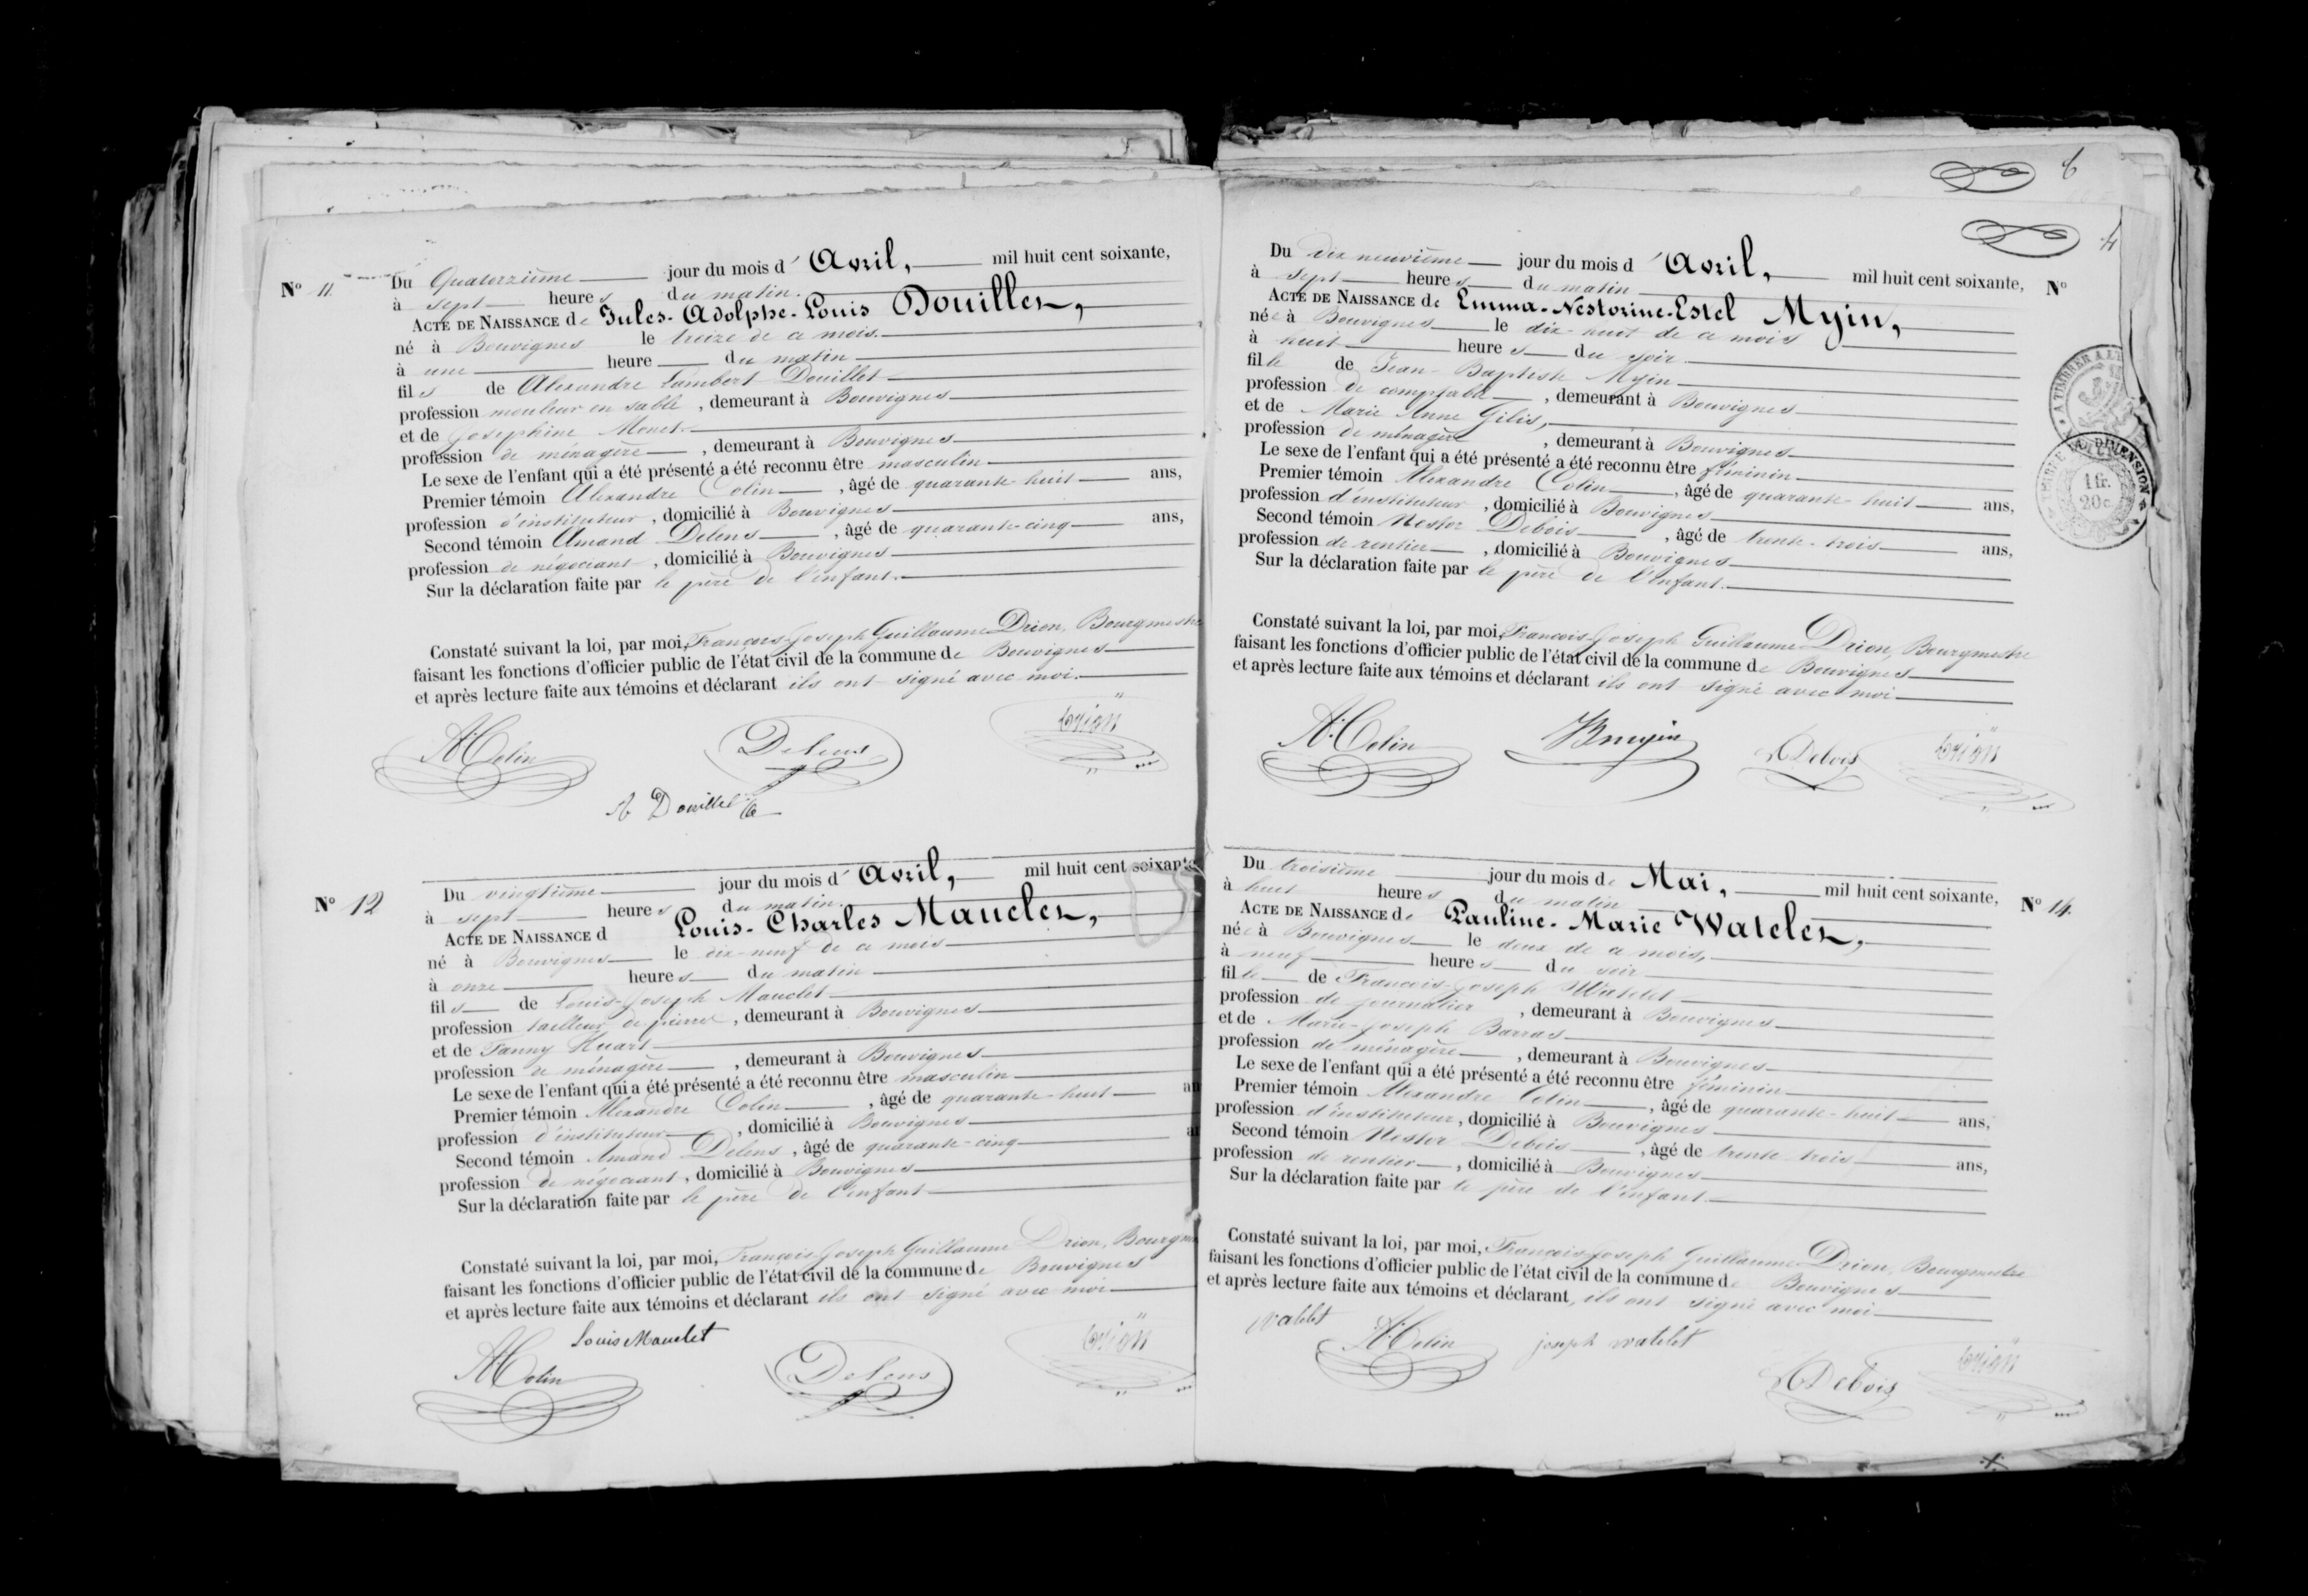 Nº 11.
Du Quatorzième jour du mois d' Avril, mil huit cent soixante,
à sept heures du matin.
ACTE DE NAISSANCE de Jules-Adolphe-Louis Douillet,
né à Bouvignes le treize de ce mois.
à une heure du matin
fils de Alexandre Lambert Douillet
profession mouleur en sable, demeurant à Bouvignes
et de Josephine Monet
profession de ménagère, demeurant à Bouvignes
Le sexe de l'enfant qui a été présenté a été reconnu être masculin
Premier témoin Alexandre Colin, âgé de quarante-huit ans,
profession d'instituteur, domicilié à Bouvignes
Second témoin Amand Delens, âgé de quarante-cinq ans,
profession de négociant, domicilié à Bouvignes
Sur la déclaration faite par le père de l'enfant.
Constaté suivant la loi, par moi, François-Joseph Guillaume Drion, Bourgmestre
faisant les fonctions d'officier public de l'état civil de la commune de Bouvignes
et après lecture faite aux témoins et déclarant ils ont signé avec moi.
A. Colin Delens Drion
A Douillet
Nº 12
Du vingtième jour du mois d' Avril, mil huit cent soixante
à sept heures du matin.
ACTE DE NAISSANCE d Louis-Charles Mauclet,
né à Bouvignes le dix-neuf de ce mois
à onze heures du matin
fils de Louis-Joseph Mauclet
profession tailleur de pierres, demeurant à Bouvignes
et de Fanny Huart
profession de ménagère, demeurant à Bouvignes
Le sexe de l'enfant qui a été présenté a été reconnu être masculin
Premier témoin Alexandre Colin, âgé de quarante-huit an
profession d'instituteur, domicilié à Bouvignes
Second témoin Amand Delens, âgé de quarante-cinq an
profession de négociant, domicilié à Bouvignes
Sur la déclaration faite par le père de l'enfant
Constaté suivant la loi, par moi, François-Joseph Guillaume Drion, Bourgme
faisant les fonctions d'officier public de l'état civil de la commune de Bouvignes
et après lecture faite aux témoins et déclarant ils ont signé avec moi
Louis Mauclet
A Colin Delens Drion
6
4
Du dix neuvième jour du mois d' Avril, mil huit cent soixante, Nº
à sept heures du matin
ACTE DE NAISSANCE de Emma-Nestorine-Estel Myin,
née à Bouvignes le dix-huit de ce mois
à huit heures du soir
fille de Jean-Baptiste Myin
profession de comptable, demeurant à Bouvignes
et de Marie Anne Gilis,
profession de ménagère, demeurant à Bouvignes
Le sexe de l'enfant qui a été présenté a été reconnu être féminin
Premier témoin Alexandre Colin, âgé de quarante-huit ans,
profession d'instituteur, domicilié à Bouvignes
Second témoin Nestor Debois, âgé de trente-trois ans,
profession de rentier, domicilié à Bouvignes
Sur la déclaration faite par le père de l'enfant.
A TIMBRER A L'EX
TIMBRE DE DIMENSION
1 fr.
20 c.
Constaté suivant la loi, par moi, François-Joseph Guillaume Drion, Bourgmestre
faisant les fonctions d'officier public de l'état civil de la commune de Bouvignes
et après lecture faite aux témoins et déclarant ils ont signé avec moi
A. Colin JBmyin N Debois Drion
Du troisième jour du mois de Mai, mil huit cent soixante, Nº 14.
à huit heures du matin
ACTE DE NAISSANCE de Pauline-Marie Watelet,
née à Bouvignes le deux de ce mois,
à neuf heures du soir
fille de François-Joseph Watelet
profession de journalier, demeurant à Bouvignes
et de Marie-Joseph Barras
profession de ménagère, demeurant à Bouvignes
Le sexe de l'enfant qui a été présenté a été reconnu être féminin
Premier témoin Alexandre Colin, âgé de quarante-huit ans,
profession d'instituteur, domicilié à Bouvignes
Second témoin Nestor Debois, âgé de trente trois ans,
profession de rentier, domicilié à Bouvignes
Sur la déclaration faite par le père de l'enfant.
Constaté suivant la loi, par moi, François-Joseph Guillaume Drion, Bourgmestre
faisant les fonctions d'officier public de l'état civil de la commune de Bouvignes
et après lecture faite aux témoins et déclarant, ils ont signé avec moi
watelet A. Colin joseph watelet
N Debois Drion